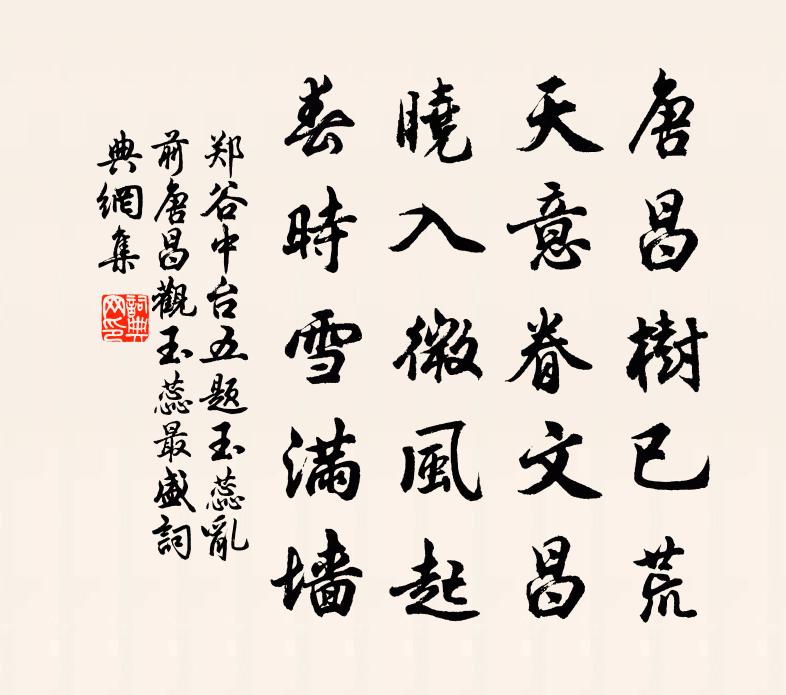 唐昌樹已荒
天意眷文昌
曉入微風起
春時雪滿墻
郑谷中台五题玉蕊亂
前唐昌觀玉蕊最盛詞
典網集
詞典网印